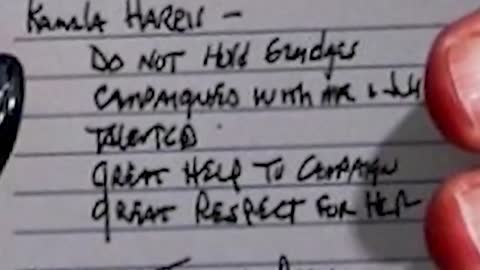 Kamala Harris –
Do not hold grudges
Campaigned with me & Jill
Talented
Great help to campaign
Great respect for her